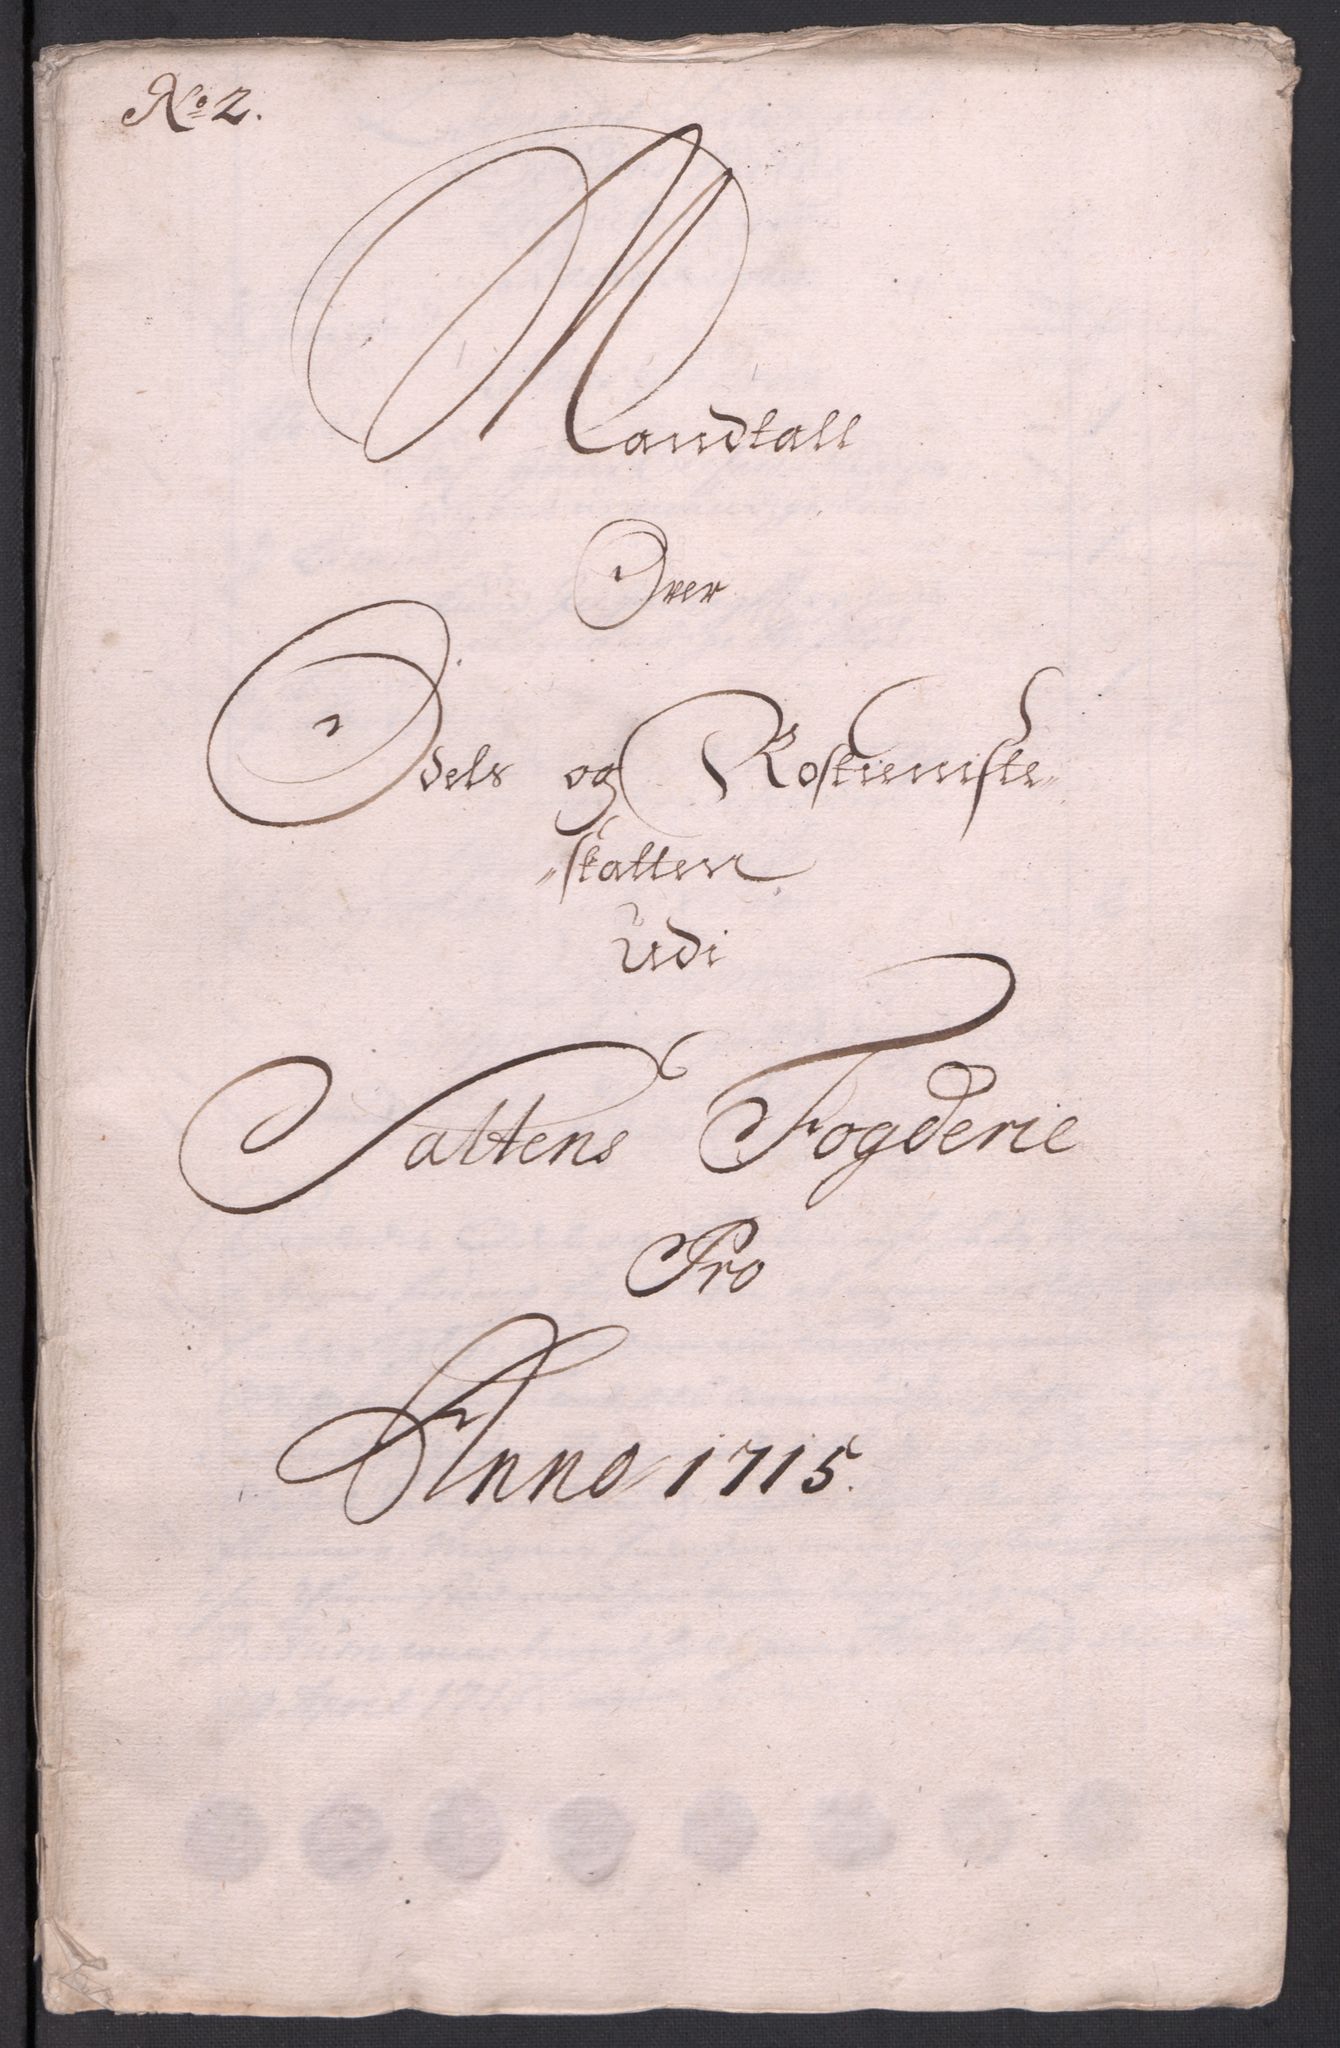 No 2.
Mandtall
Over
Odels og Rostieniste
skatten
Udi
Saltens Fogderie
Pro
Anno 1715.